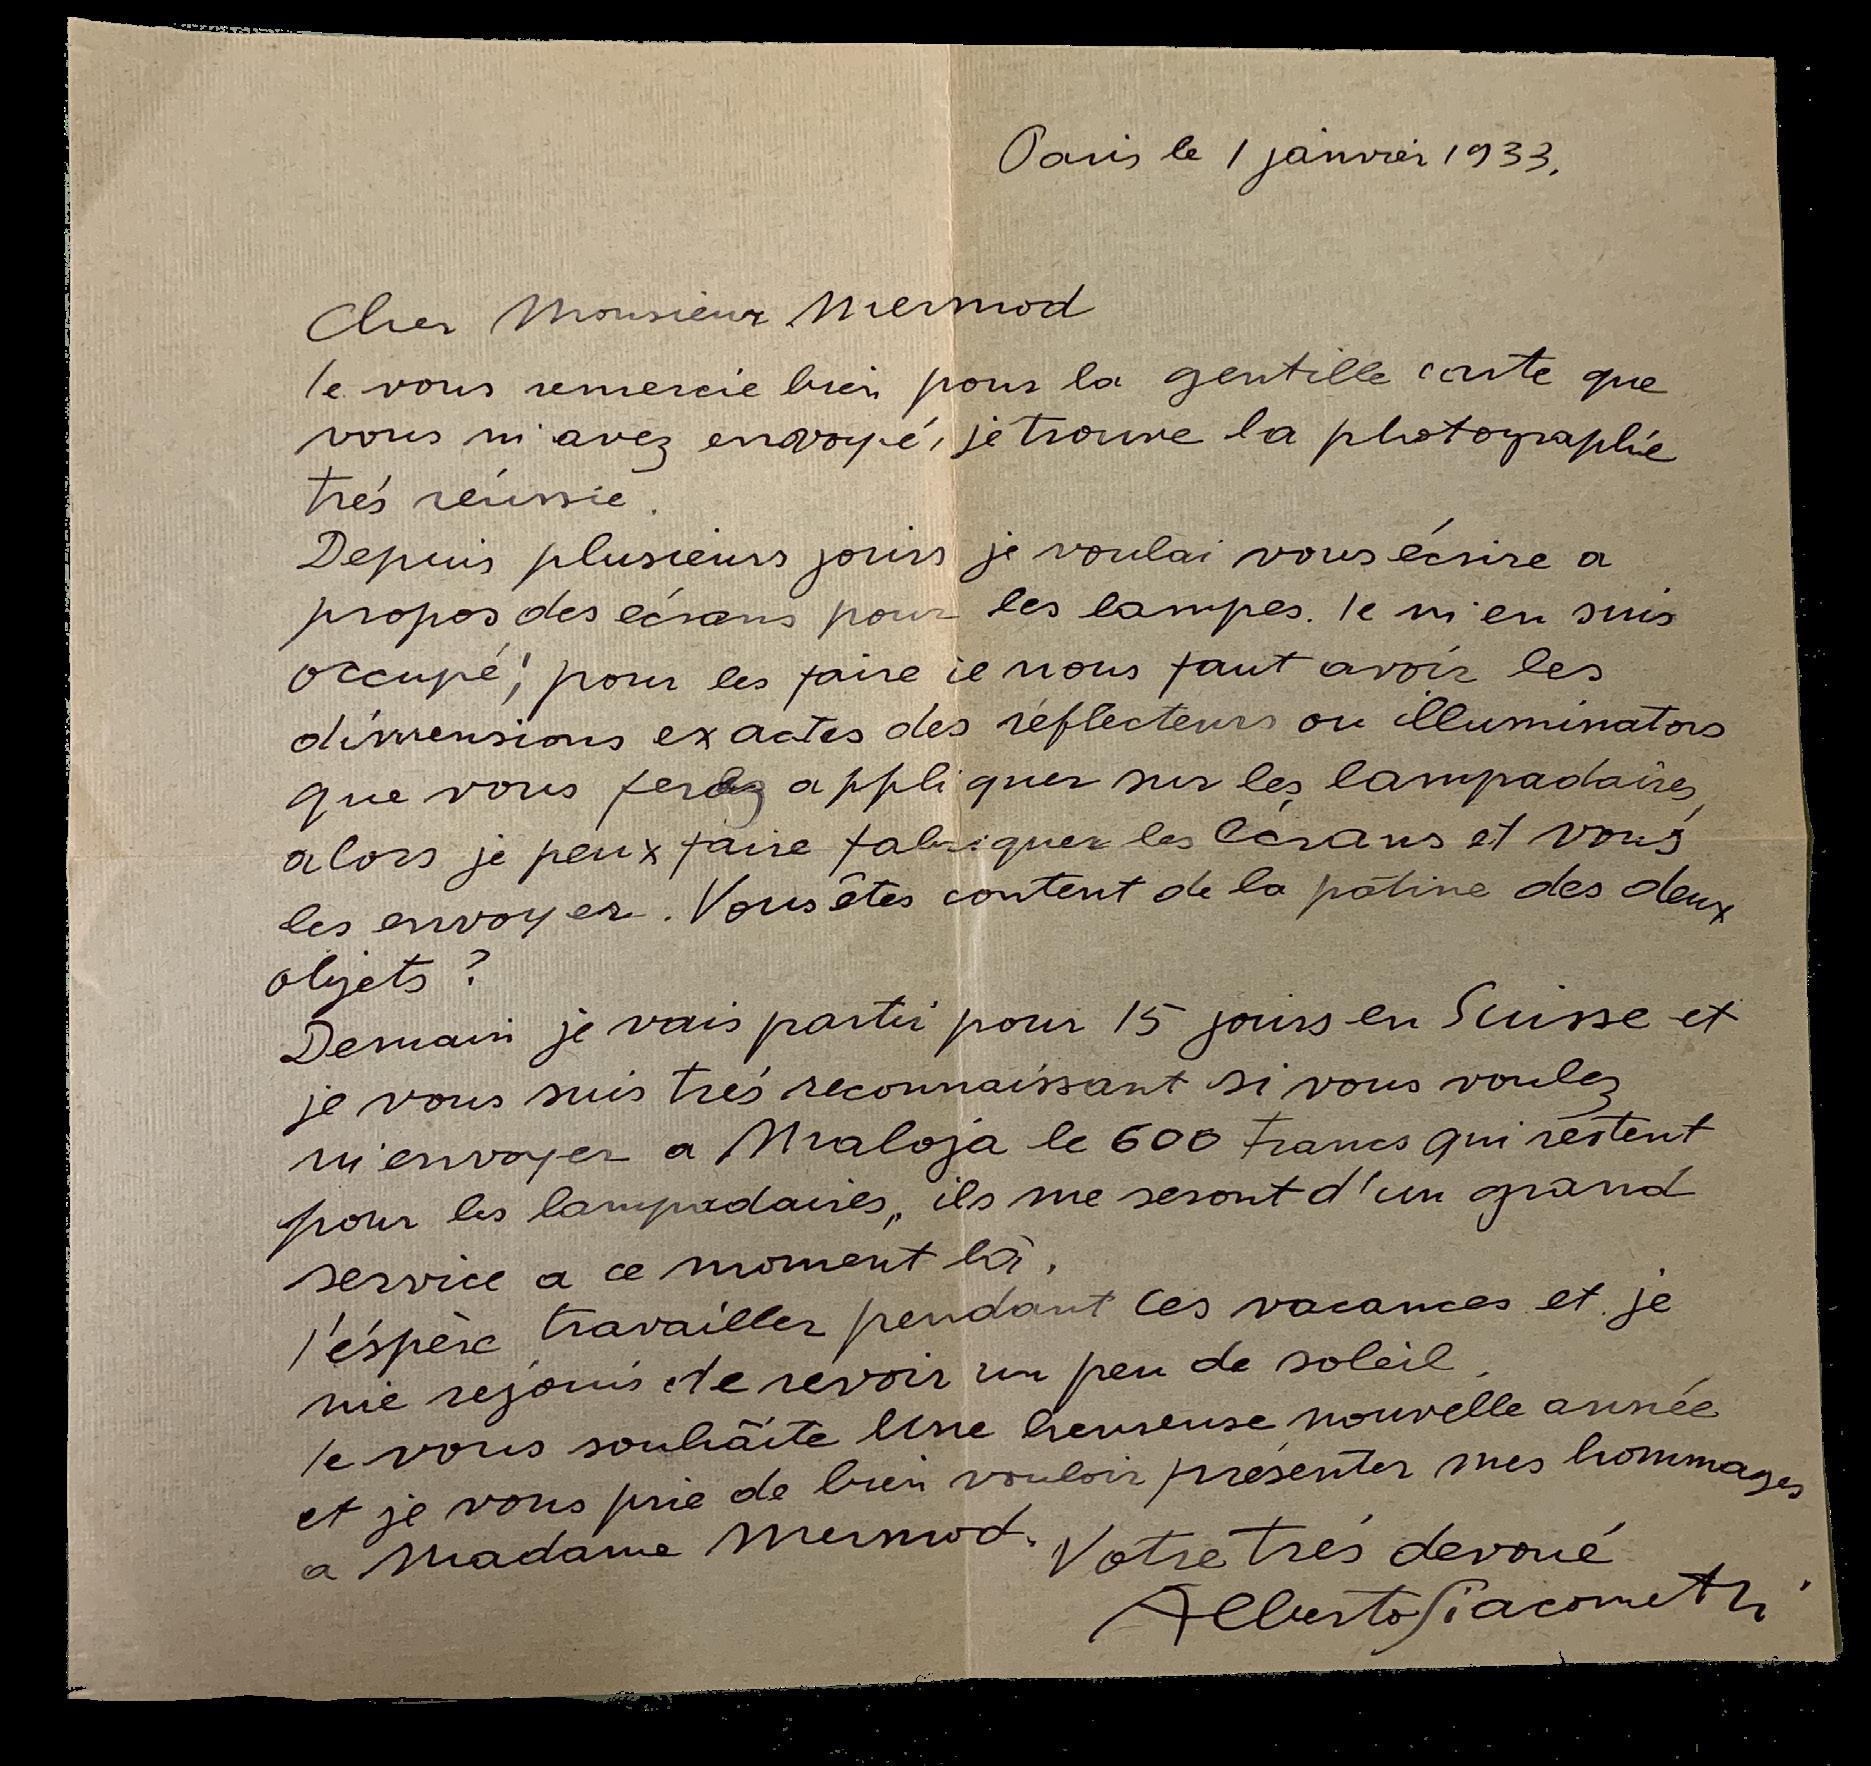 Paris le 1 janvier 1933.
Cher Monsieur Mermod
Je vous remercie bien pour la gentille carte que
vous m'avez envoyé, je trouve la photographie
trés réussie.
Depuis plusieurs jours je voulai vous écrire a
propos des écrans pour les lampes. Je m'en suis
occupé, pour les faire il nous faut avoir les
dimensions exactes des réflecteurs ou illuminators
que vous ferez appliquer sur les lampadaires,
alors je peux faire fabriquer les écrans et vous
les envoyer. Vous êtes content de la patine des deux
objets ?
Demain je vais partir pour 15 jours en Suisse et
je vous suis trés reconnaissant si vous voulez
m'envoyer a Maloja le 600 francs qui restent
pour les lampadaires, ils me seront d'un grand
service a ce moment là.
J'éspère travailler pendant ces vacances et je
me rejouis de revoir un peu de soleil.
Je vous souhaite Une heureuse nouvelle année
et je vous prie de bien vouloir présenter mes hommages
a Madame Mermod. Votre trés devoué
Alberto Giacometti